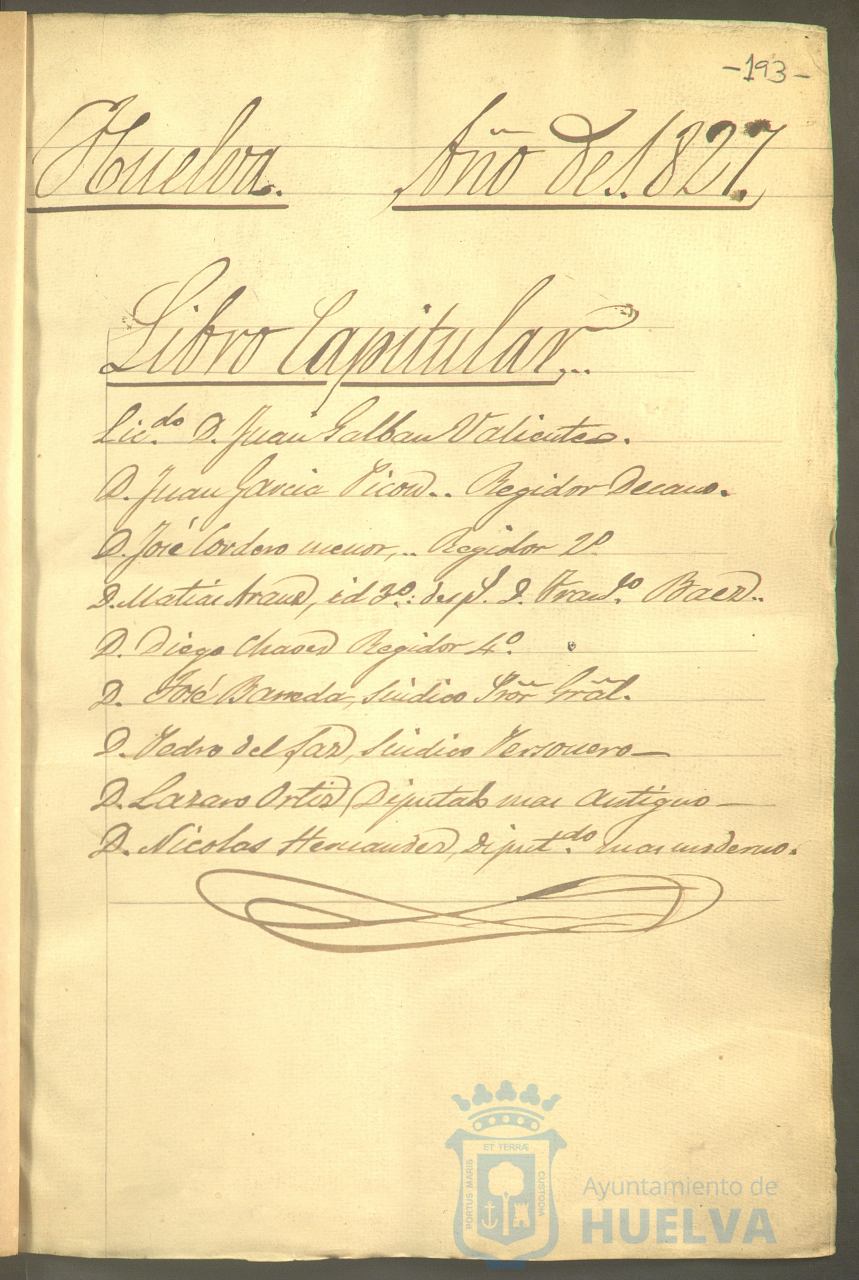 -193-
Huelva. Año de 1827.
Libro Capitular...
Lic.do D. Juan Galban Valiente.
D. Juan Garcia Picon.. Regidor Decano.
D. José Cordero menor,.. Regidor 2º
D. Matias Arauz, id 3º: desp.s D. Fran.co Baez..
D. Diego Chaves Regidor 4º
D. José Barreda, Sindico Pror Gral.
D. Pedro del Paz, Sindico Personero—
D. Lazaro Ortiz, Diputado mas antiguo—
D. Nicolas Hernandez, diput.do mas moderno.
PORTUS MARIS
ET TERRÆ
CUSTODIA
Ayuntamiento de
HUELVA